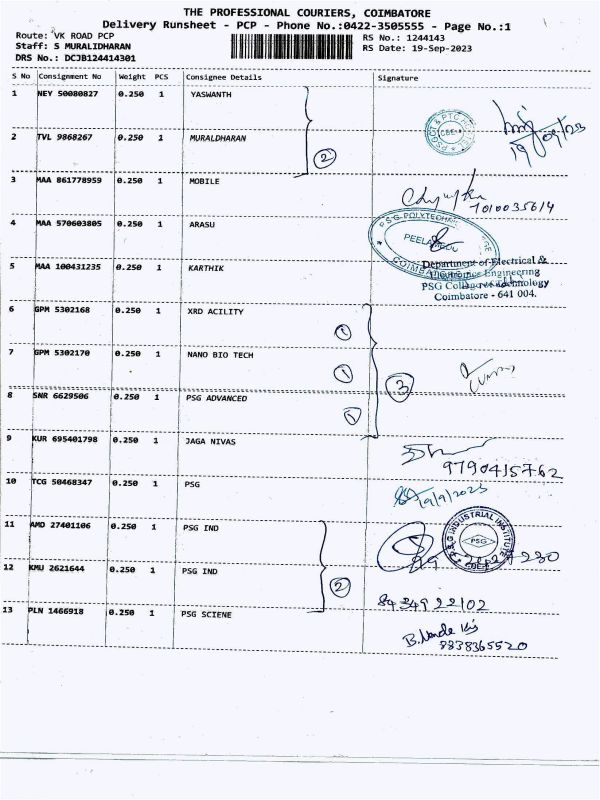 THE PROFESSIONAL COURIERS, COIMBATORE
Delivery Runsheet - PCP - Phone No.:0422-3505555 - Page No.:1
Route: VK ROAD PCP RS No.: 1244143
Staff: S MURALIDHARAN RS Date: 19-Sep-2023
DRS No.: DCJB124414301
S No Consignment No Weight PCS Consignee Details Signature
1 NEY 50080827 0.250 1 YASWANTH
2 TVL 9868267 0.250 1 MURALDHARAN
19/09/23
2
3 MAA 861778959 0.250 1 MOBILE
7010035614
4 MAA 570603805 0.250 1 ARASU
PSG POLYTECHNIC
PEELAMEDU
COIMBATORE
Department of Electrical &
Electronics Engineering
5 MAA 100431235 0.250 1 KARTHIK
PSG College of Technology
Coimbatore - 641 004.
6 GPM 5302168 0.250 1 XRD ACILITY
1
7 GPM 5302170 0.250 1 NANO BIO TECH
1
3
8 SNR 6629506 0.250 1 PSG ADVANCED
1
9 KUR 695401798 0.250 1 JAGA NIVAS
9790415762
10 TCG 50468347 0.250 1 PSG
19/9/2023
11 AMD 27401106 0.250 1 PSG IND
PSG INDUSTRIAL INSTITUTE
PSG
12 KMU 2621644 0.250 1 PSG IND
2
8934922102
13 PLN 1466918 0.250 1 PSG SCIENE
8838365520